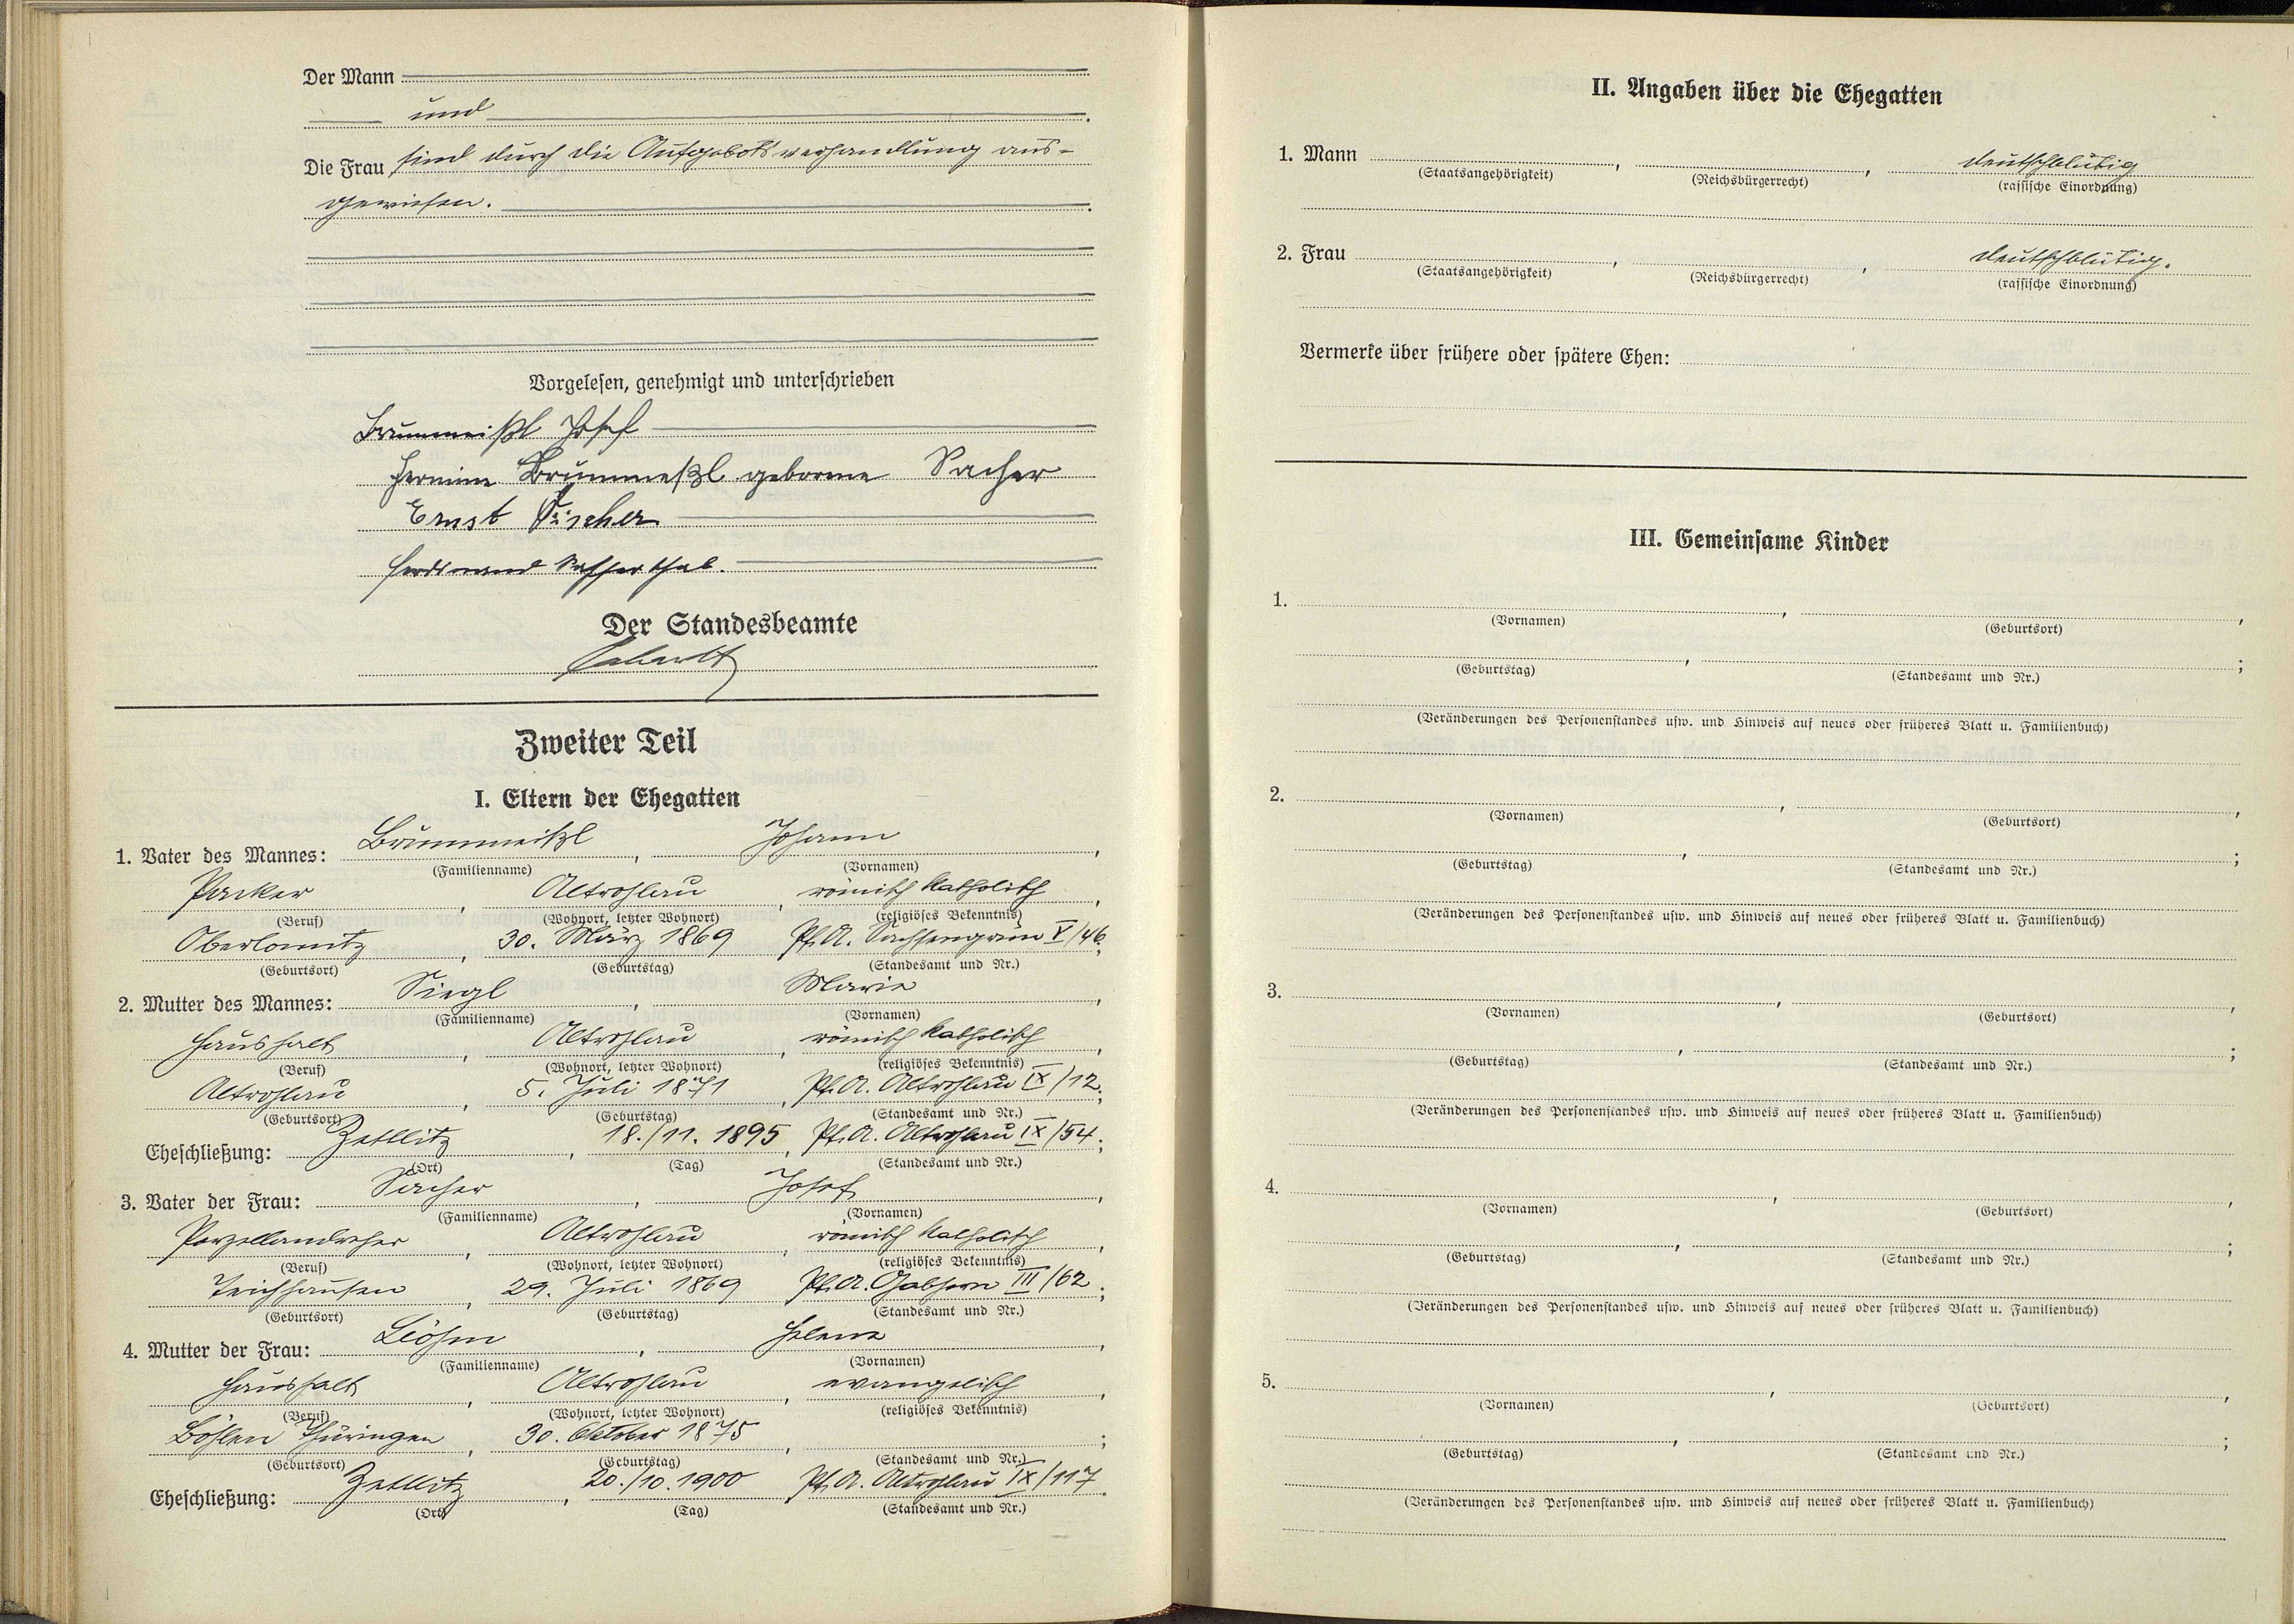 Der Mann
und
Die Frau sind durch die Aufgebotsverhandlung aus-
gewiesen.
Vorgelesen, genehmigt und unterschrieben
Brummeißl Josef
Hermine Brummeißl geborene Sacher
Ernst Fischer
Ferdinand
Der Standesbeamte
Zweiter Teil
I. Eltern der Ehegatten
1. Vater des Mannes: Brummeißl, Johann,
(Familienname) (Vornamen)
Packer, Altrohlau, römisch katholisch,
(Beruf) (Wohnort, letzter Wohnort) (religiöses Bekenntnis)
Oberlomitz, 30. März 1869 Pf.A. Sachsengrün V/46;
(Geburtsort) (Geburtstag) (Standesamt und Nr.)
2. Mutter des Mannes: Siegl, Marie,
(Familienname) (Vornamen)
Haushalt, Altrohlau, römisch katholisch,
(Beruf) (Wohnort, letzter Wohnort) (religiöses Bekenntnis)
Altrohlau, 5. Juli 1871, Pf.A. Altrohlau IX/12;
(Geburtsort) (Geburtstag) (Standesamt und Nr.)
Eheschließung: Zettlitz, 18./11. 1895, Pf.A. Altrohlau IX/54;
(Ort) (Tag) (Standesamt und Nr.)
3. Vater der Frau: Sacher, Josef,
(Familienname) (Vornamen)
Porzellandreher, Altrohlau, römisch katholisch,
(Beruf) (Wohnort, letzter Wohnort) (religiöses Bekenntnis)
Teichhäusen, 29. Juli 1869 Pf.A. Gabhorn III/62;
(Geburtsort) (Geburtstag) (Standesamt und Nr.)
4. Mutter der Frau: Böhm, Helene,
(Familienname) (Vornamen)
Haushalt, Altrohlau, evangelisch,
(Beruf) (Wohnort, letzter Wohnort) (religiöses Bekenntnis)
Böhlen Thüringen, 30. Oktober 1875, ;
(Geburtsort) (Geburtstag) (Standesamt und Nr.)
Eheschließung: Zettlitz, 20./10. 1900 Pf.A. Altrohlau IX/117.
(Ort) (Tag) (Standesamt und Nr.)
II. Angaben über die Ehegatten
1. Mann , , deutschblütig
(Staatsangehörigkeit) (Reichsbürgerrecht) (rassische Einordnung)
2. Frau , , deutschblütig.
(Staatsangehörigkeit) (Reichsbürgerrecht) (rassische Einordnung)
Vermerke über frühere oder spätere Ehen:
III. Gemeinsame Kinder
1. , ,
(Vornamen) (Geburtsort)
, ;
(Geburtstag) (Standesamt und Nr.)
(Veränderungen des Personenstandes usw. und Hinweis auf neues oder früheres Blatt u. Familienbuch)
2. , ,
(Vornamen) (Geburtsort)
, ;
(Geburtstag) (Standesamt und Nr.)
(Veränderungen des Personenstandes usw. und Hinweis auf neues oder früheres Blatt u. Familienbuch)
3. , ,
(Vornamen) (Geburtsort)
, ;
(Geburtstag) (Standesamt und Nr.)
(Veränderungen des Personenstandes usw. und Hinweis auf neues oder früheres Blatt u. Familienbuch)
4. , ,
(Vornamen) (Geburtsort)
, ;
(Geburtstag) (Standesamt und Nr.)
(Veränderungen des Personenstandes usw. und Hinweis auf neues oder früheres Blatt u. Familienbuch)
5. , ,
(Vornamen) (Geburtsort)
, ;
(Geburtstag) (Standesamt und Nr.)
(Veränderungen des Personenstandes usw. und Hinweis auf neues oder früheres Blatt u. Familienbuch)